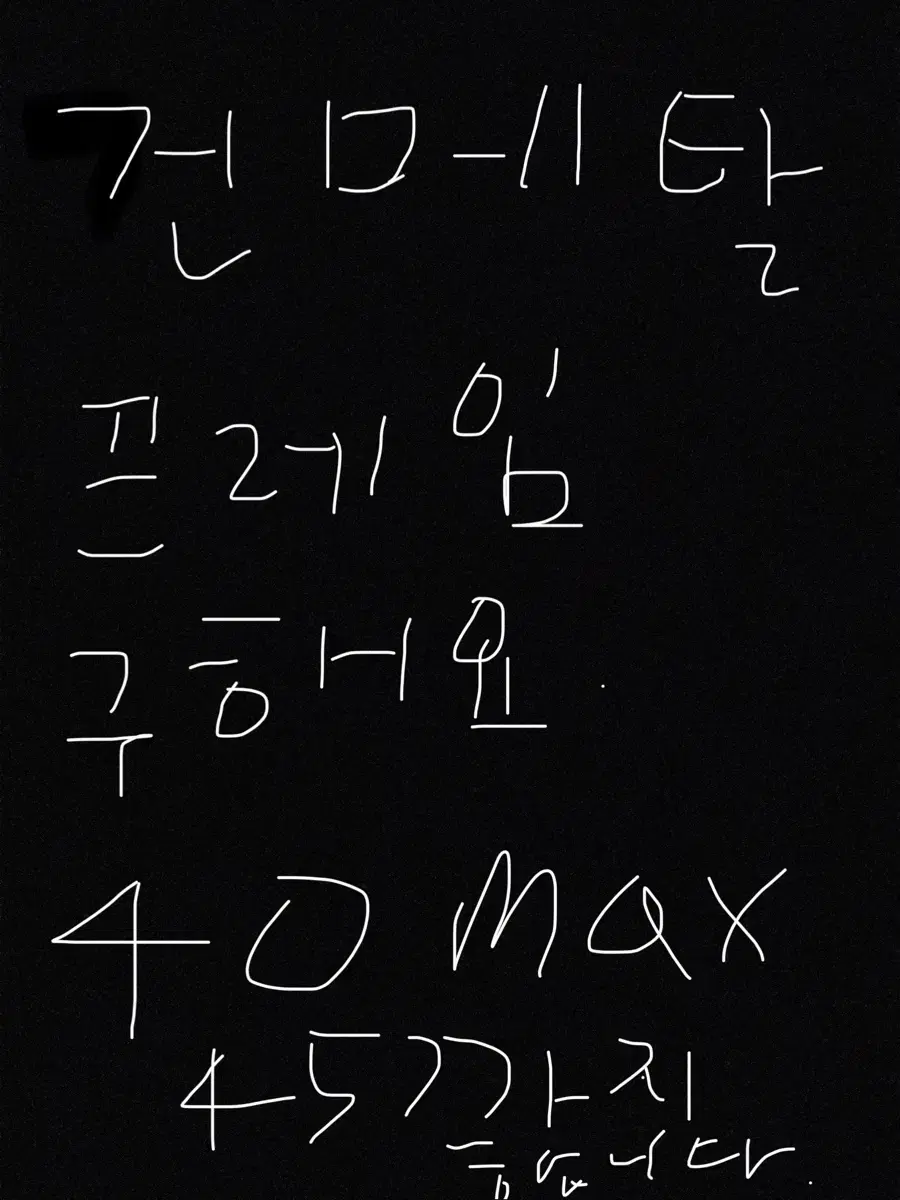 건메탈
프레임
구해요.
40 max
45까지
합니다.